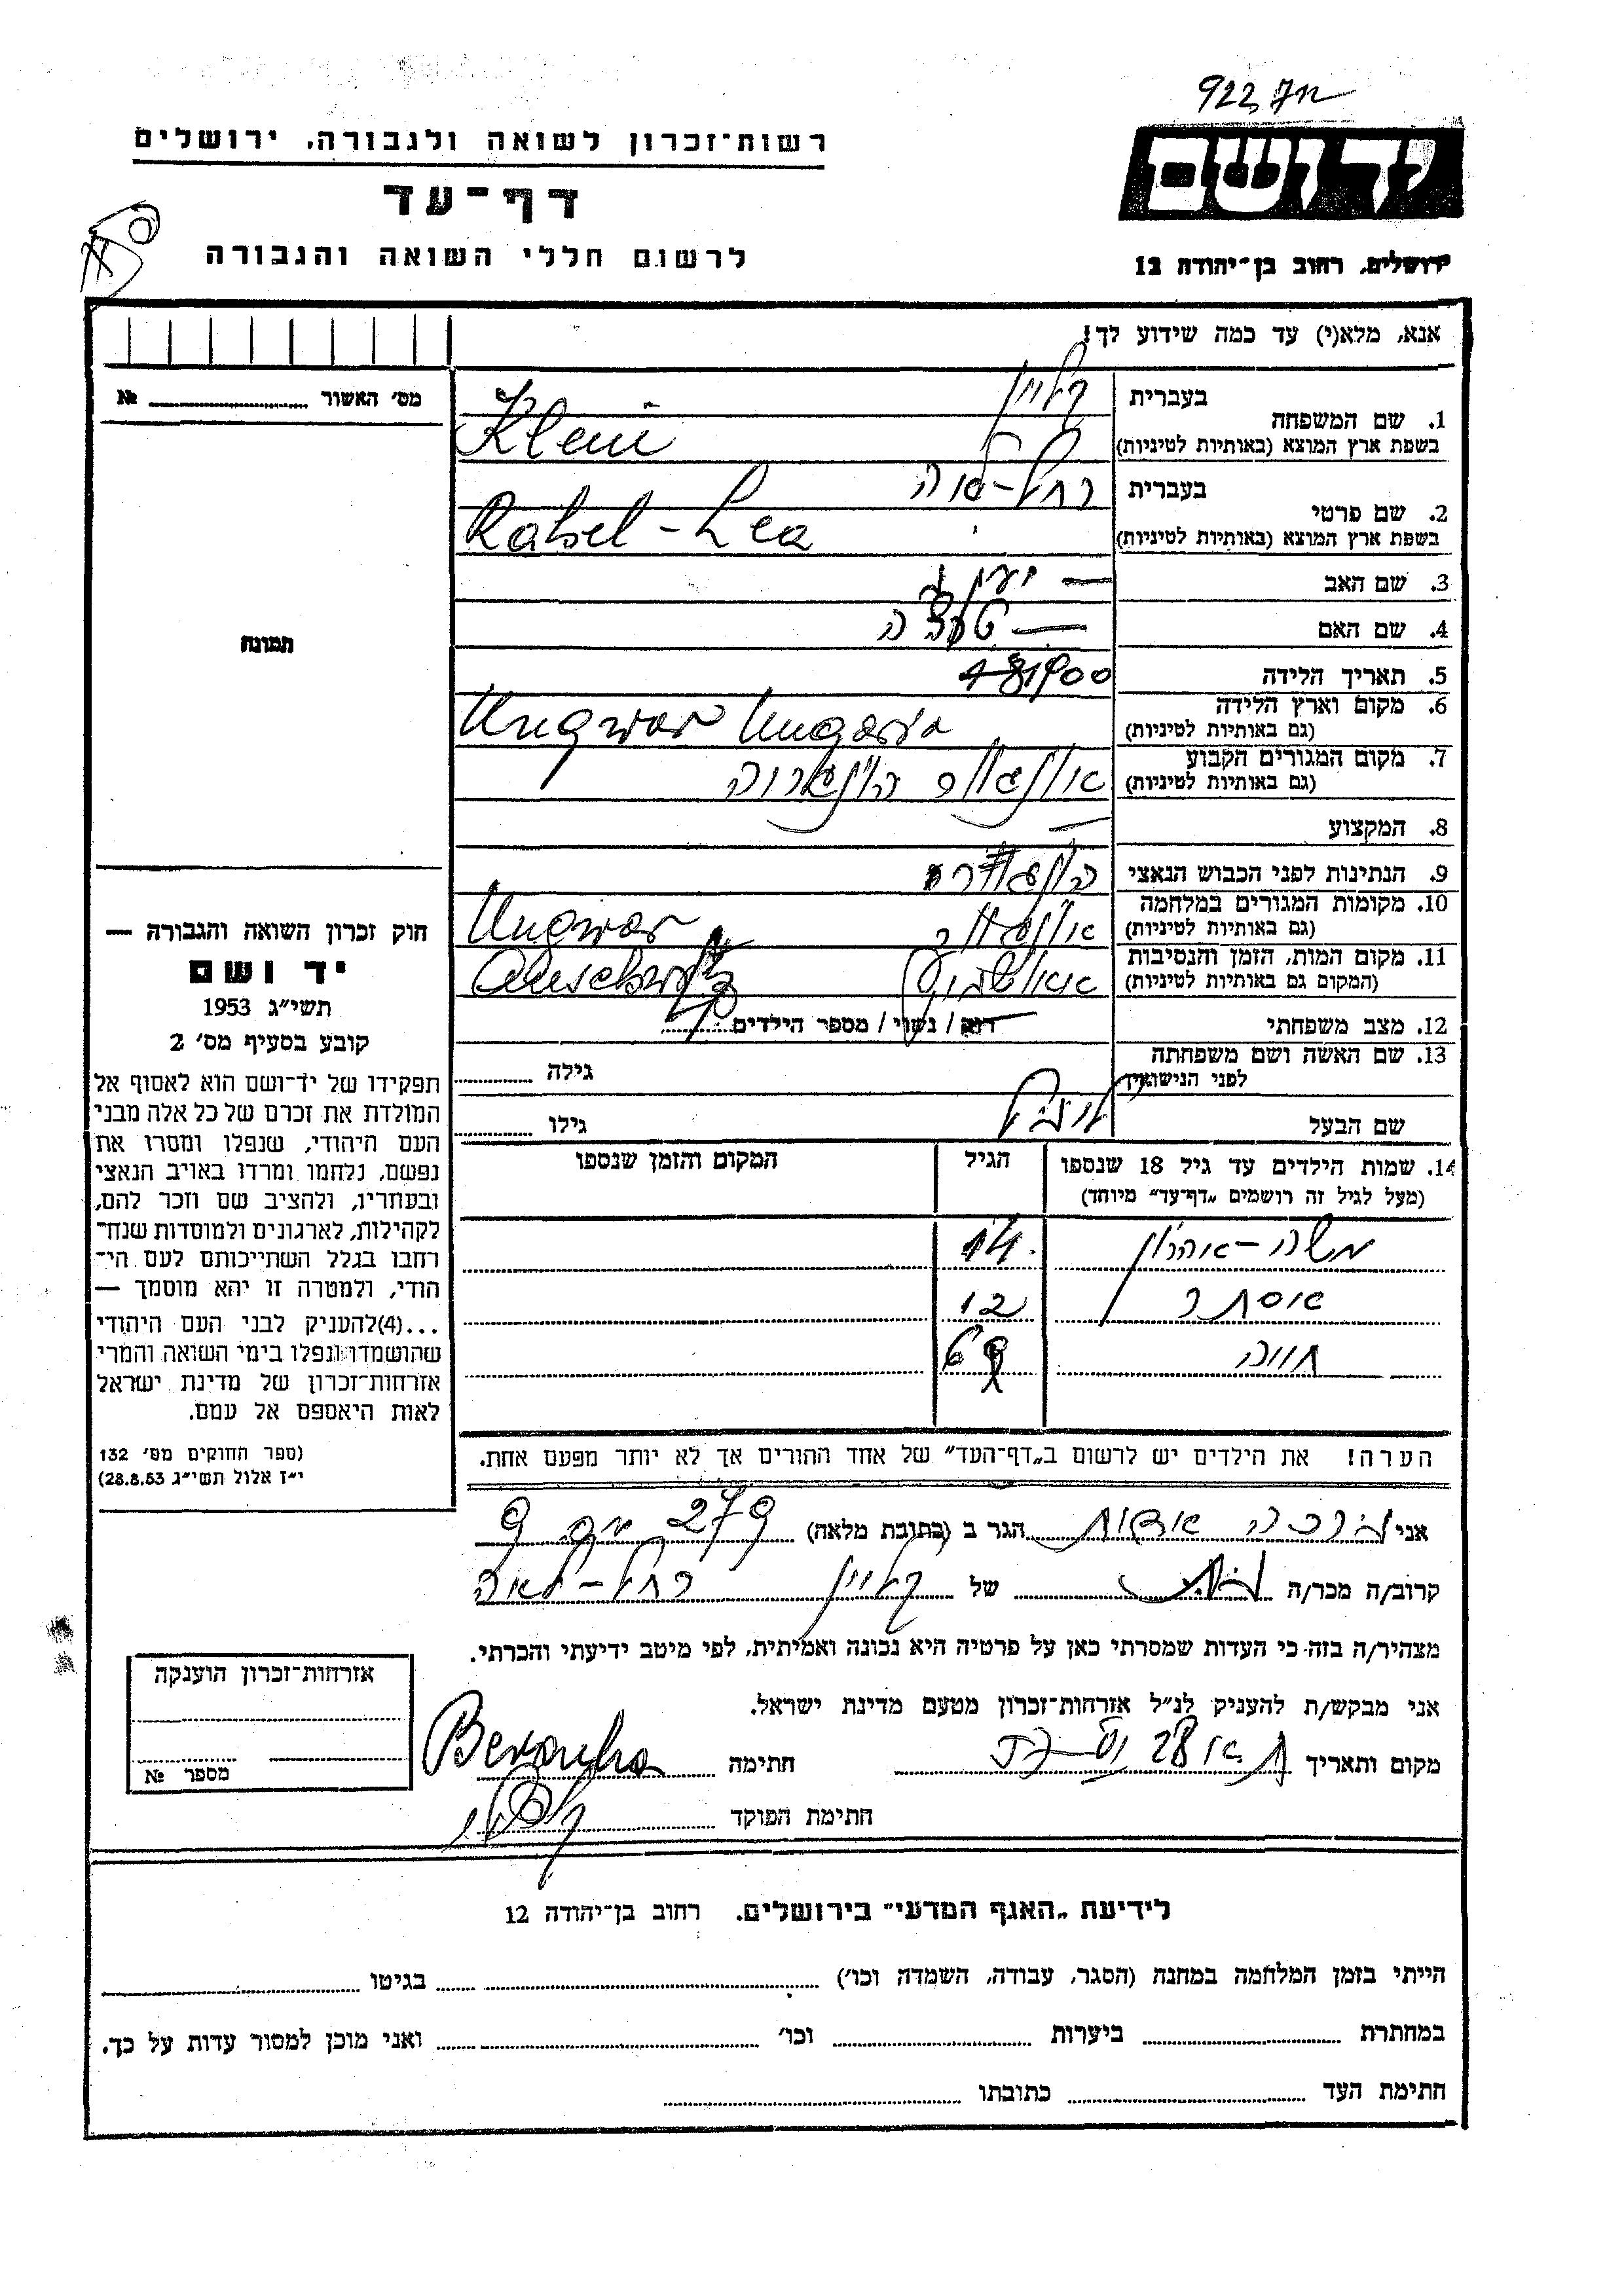 922
רשות־זכרון לשואה ולגבורה, ירושלים
דף־עד
לרשום חללי השואה והגבורה
יד ושם
ירושלים, רחוב בן־יהודה 12
אנא, מלא(י) עד כמה שידוע לך!
מס׳ האשור № 
1. שם המשפחה
בעברית קליין
בשפת ארץ המוצא (באותיות לטיניות) Klein
2. שם פרטי
בעברית רחל-לאה
בשפת ארץ המוצא (באותיות לטיניות) Rahel-Lea
3. שם האב —
4. שם האם —
5. תאריך הלידה 1900
6. מקום וארץ הלידה
(גם באותיות לטיניות) Ungwar Ungaria
7. מקום המגורים הקבוע
(גם באותיות לטיניות) אונגואר הונגריה
8. המקצוע —
9. הנתינות לפני הכבוש הנאצי
10. מקומות המגורים במלחמה
(גם באותיות לטיניות) אונגואר Ungwar
11. מקום המות, הזמן והנסיבות
(המקום גם באותיות לטיניות) אושוויץ Auschwitz
12. מצב משפחתי רוק / נשוי / מספר הילדים
13. שם האשה ושם משפחתה
לפני הנישואין גילה
שם הבעל גילו
14. שמות הילדים עד גיל 18 שנספו הגיל המקום והזמן שנספו
(מעל לגיל זה רושמים „דף־עד״ מיוחד)
משה-אהרון 14
אסתר 12
חווה
הערה! את הילדים יש לרשום ב„דף־העד״ של אחד ההורים אך לא יותר מפעם אחת.
תמונה
חוק זכרון השואה והגבורה —
יד ושם
תשי״ג 1953
קובע בסעיף מס׳ 2
תפקידו של יד־ושם הוא לאסוף אל
המולדת את זכרם של כל אלה מבני
העם היהודי, שנפלו ומסרו את
נפשם, נלחמו ומרדו באויב הנאצי
ובעוזריו, ולהציב שם וזכר להם,
לקהילות, לארגונים ולמוסדות שנח־
רבו בגלל השתייכותם לעם הי־
הודי, ולמטרה זו יהא מוסמך —
...(4) להעניק לבני העם היהודי
שהושמדו ונפלו בימי השואה והמרי
אזרחות־זכרון של מדינת ישראל
לאות היאספם אל עמם.
(ספר החוקים מס׳ 132
י״ז אלול תשי״ג 28.8.53)
אני הגר ב (כתובת מלאה) 279
קרוב/ה מכר/ה של קליין רחל-לאה
מצהיר/ה בזה כי העדות שמסרתי כאן על פרטיה היא נכונה ואמיתית, לפי מיטב ידיעתי והכרתי.
אני מבקש/ת להעניק לנ״ל אזרחות־זכרון מטעם מדינת ישראל.
מקום ותאריך חתימה
חתימת הפוקד
אזרחות־זכרון הוענקה
מספר №
לידיעת „האגף המדעי״ בירושלים. רחוב בן־יהודה 12
הייתי בזמן המלחמה במחנה (הסגר, עבודה, השמדה וכו׳) בגיטו
במחתרת ביערות וכו׳ ואני מוכן למסור עדות על כך.
חתימת העד כתובתו